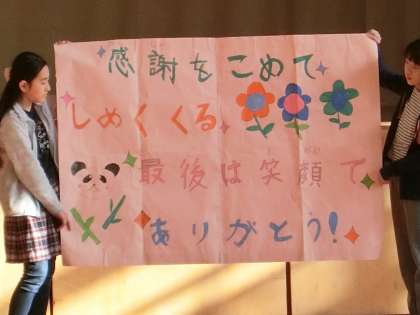 感謝をこめて
しめくくる
最後は笑顔で
ありがとう!